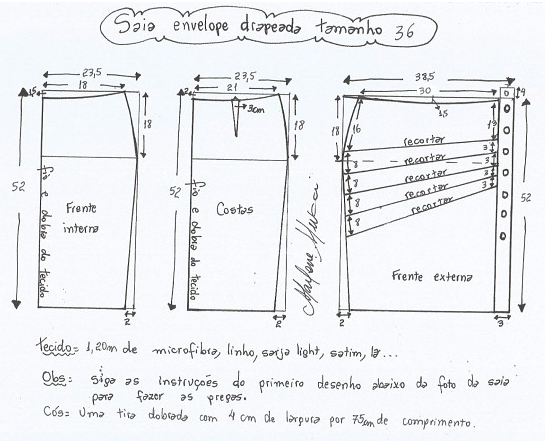 Saia envelope drapeada tamanho 36
23,5
18
1,5
18
52
fio e dobra do tecido
Frente
interna
2
23,5
21
2
3cm
18
52
fio e dobra do tecido
Costas
2
38,5
30
4
1,5
18
16
19
recortar
3
8
recortar
3
8
recortar
3
8
recortar
3
8
recortar
52
Frente externa
2
3
tecido= 1,20m de microfibra, linho, sarja light, satim, lã...
Obs= siga as instruções do primeiro desenho abaixo da foto da saia
para fazer as pregas.
Cós= Uma tira dobrada com 4 cm de largura por 75cm de comprimento.